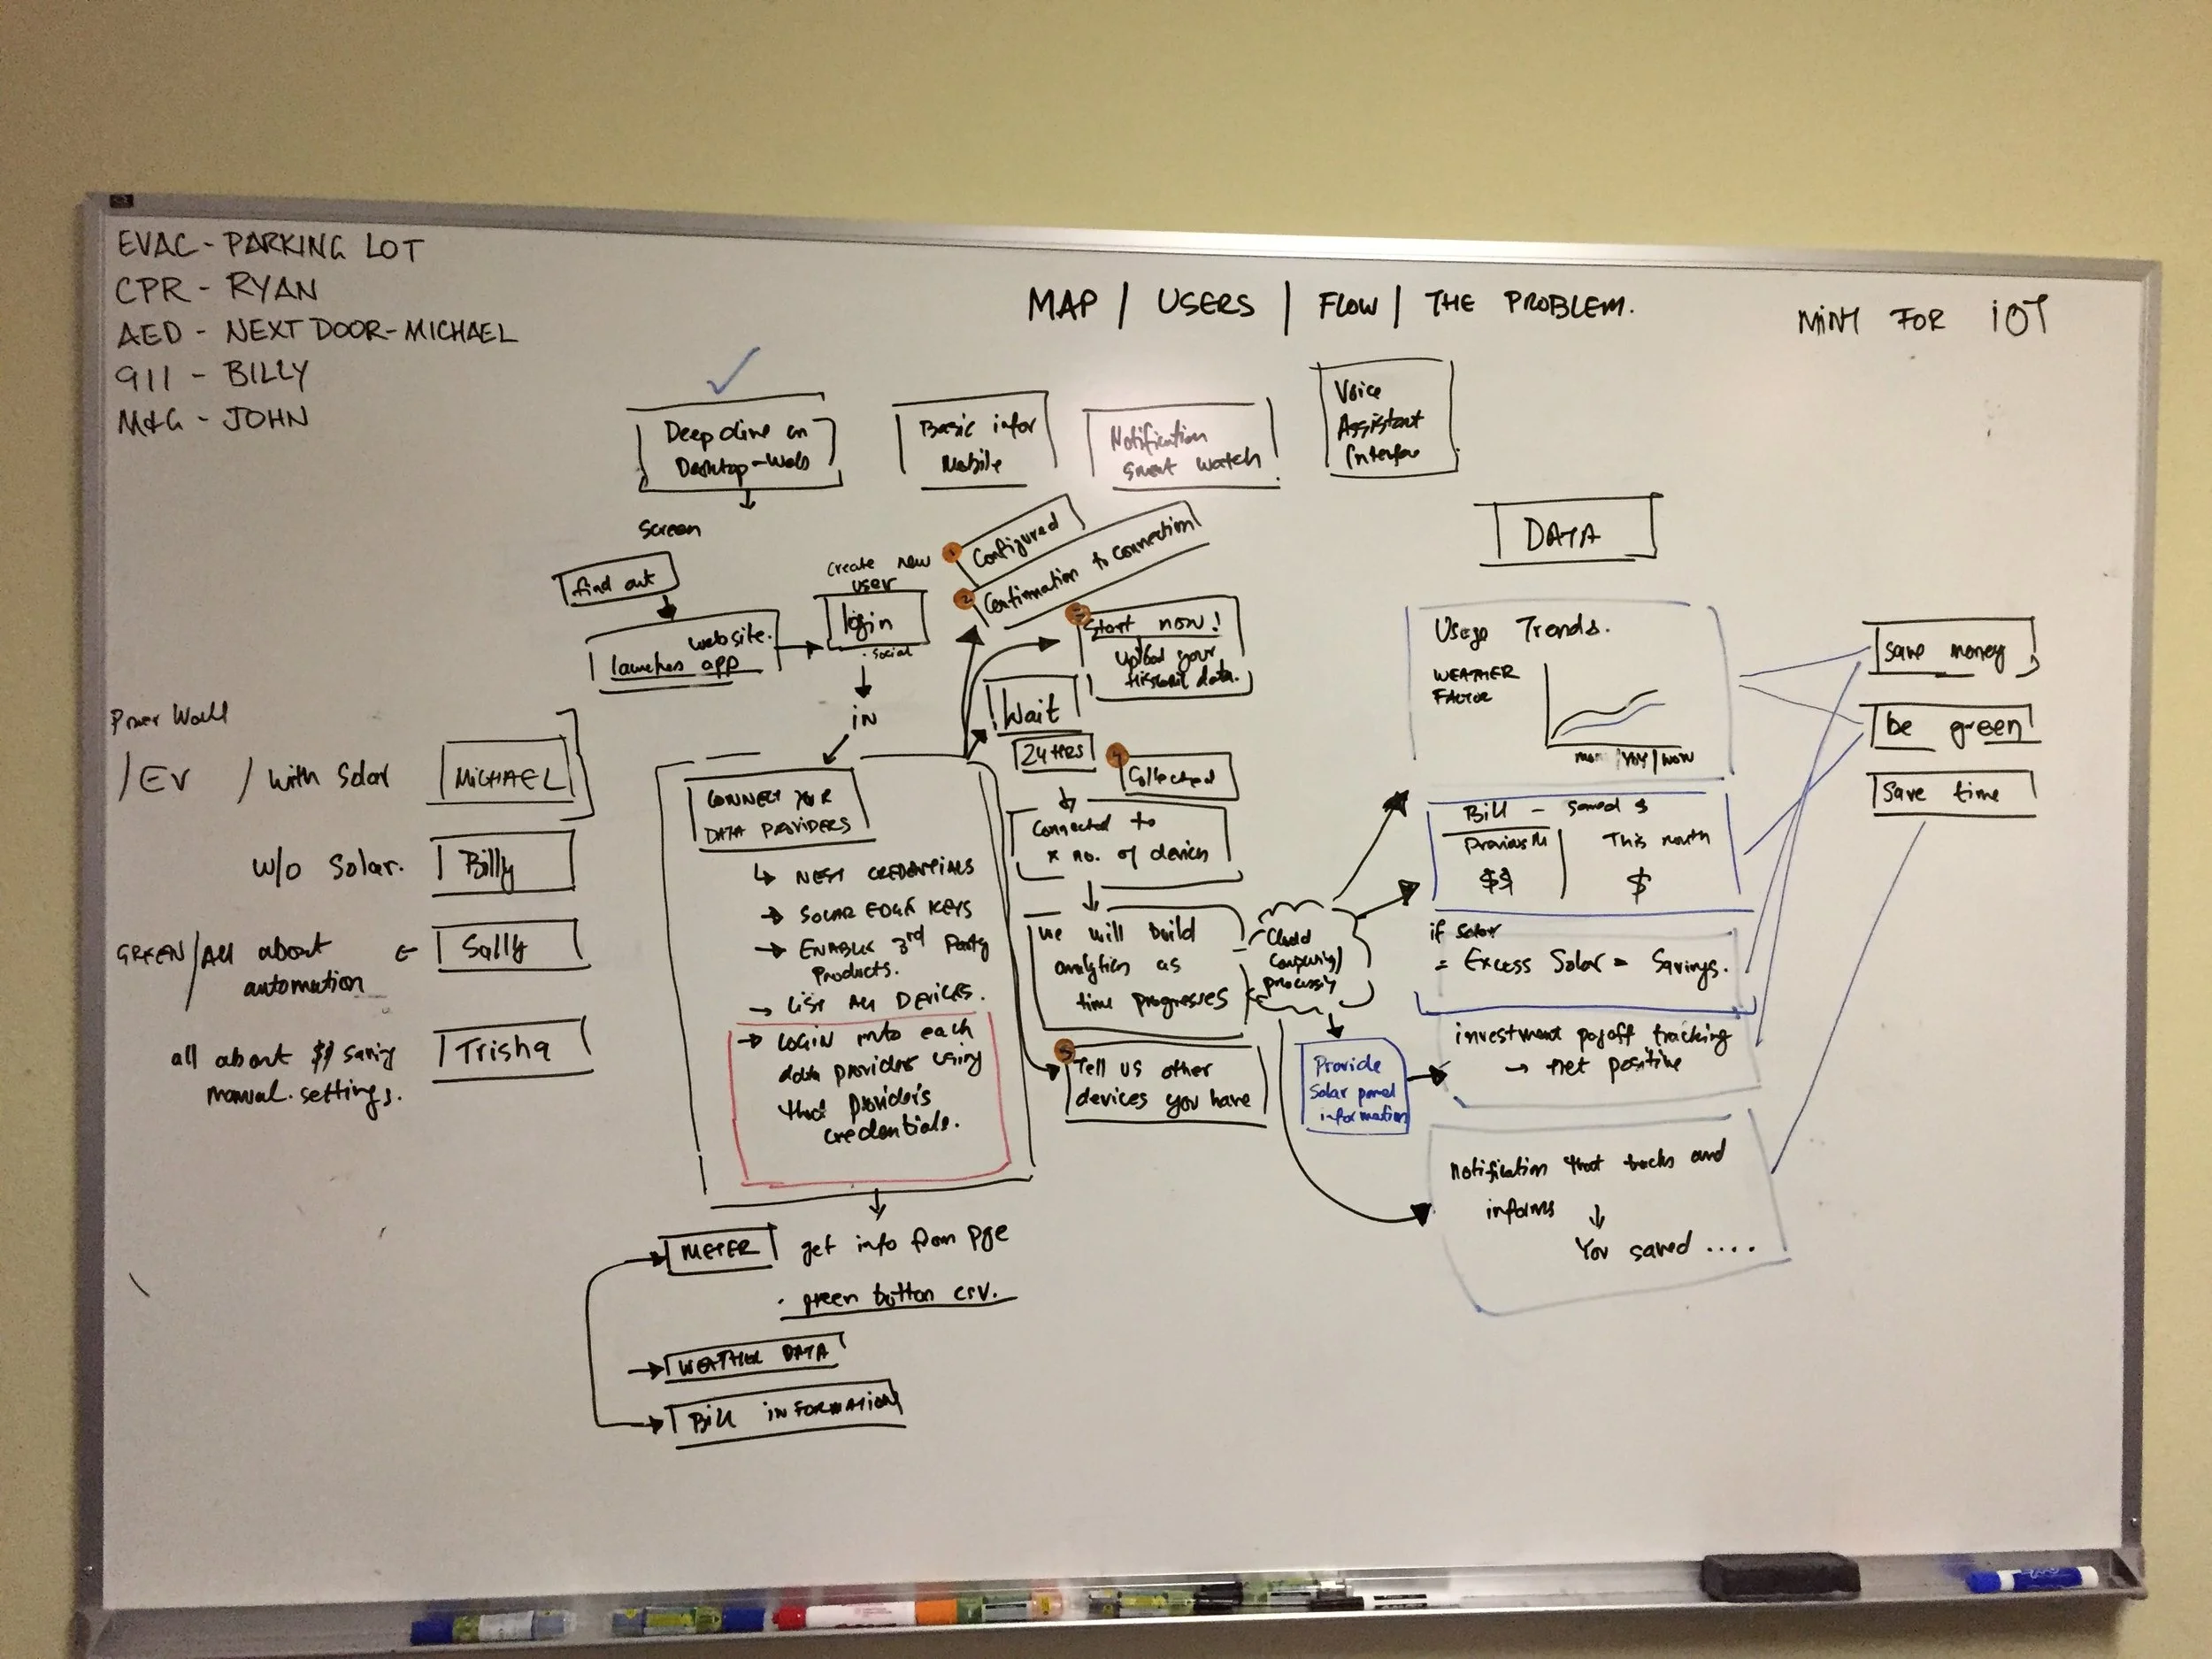 EVAC - PARKING LOT
CPR - RYAN
AED - NEXT DOOR - MICHAEL
911 - BILLY
M&G - JOHN
MAP / USERS / FLOW / THE PROBLEM.
MINT FOR IOT
Deep dive on
Desktop-Web
Basic infor
Mobile
Notification
Smart Watch
Voice
Assistant
Screen
find out
website.
launches app
create new
user
login
. social
IN
1 Configured
2 Confirmation to connection
3 Start now!
upload your
historic data.
Wait
24 HRS
4 Collected
Connected to
x no. of devices
we will build
analytics as
time progresses
5 Tell us other
devices you have
Power Wall
/ EV / with Solar
MICHAEL
w/o Solar.
Billy
GREEN/All about
automation
←
Sally
all about $$ saving
manual. settings.
Trisha
CONNECT YOUR
DATA PROVIDERS
↳ NEST CREDENTIALS
→ SOLAR EDGE KEYS
→ ENABLE 3rd Party
Products.
→ LIST ALL DEVICES.
→ LOGIN into each
data provider using
that provider's
credentials.
METER
get info from pge
. green button csv.
→ WEATHER DATA
→ Bill INFORMATION
Cloud
computing/
Provide
Solar panel
information
DATA
Usage Trends.
WEATHER
FACTOR
Bill - saved $
Previous M
This month
$$
$
if solar
= Excess Solar = Savings.
investment payoff tracking
→ net positive
Notification that tracks and
informs ↓
You saved ....
save money
be green
Save time